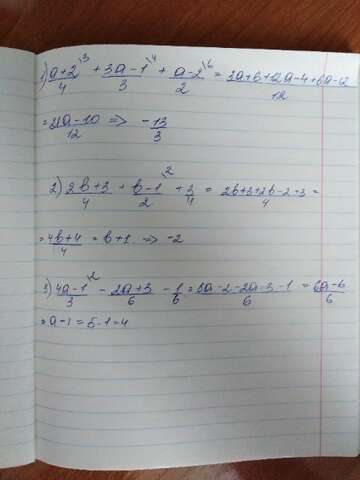 1) a+2/4 \3 + 3a-1/3 \4 + a-2/2 \6 = 3a+6+12a-4+6a-12/12
= 21a-10/12 => -13/3
2) 2b+3/4 + b-1/2 \2 + 3/4 = 2b+3+2b-2+3/4 =
= 4b+4/4 = b+1. => -2
3) 4a-1/3 \2 - 2a+3/6 - 1/6 = 8a-2-2a-3-1/6 = 6a-6/6
= a-1 = 5-1=4